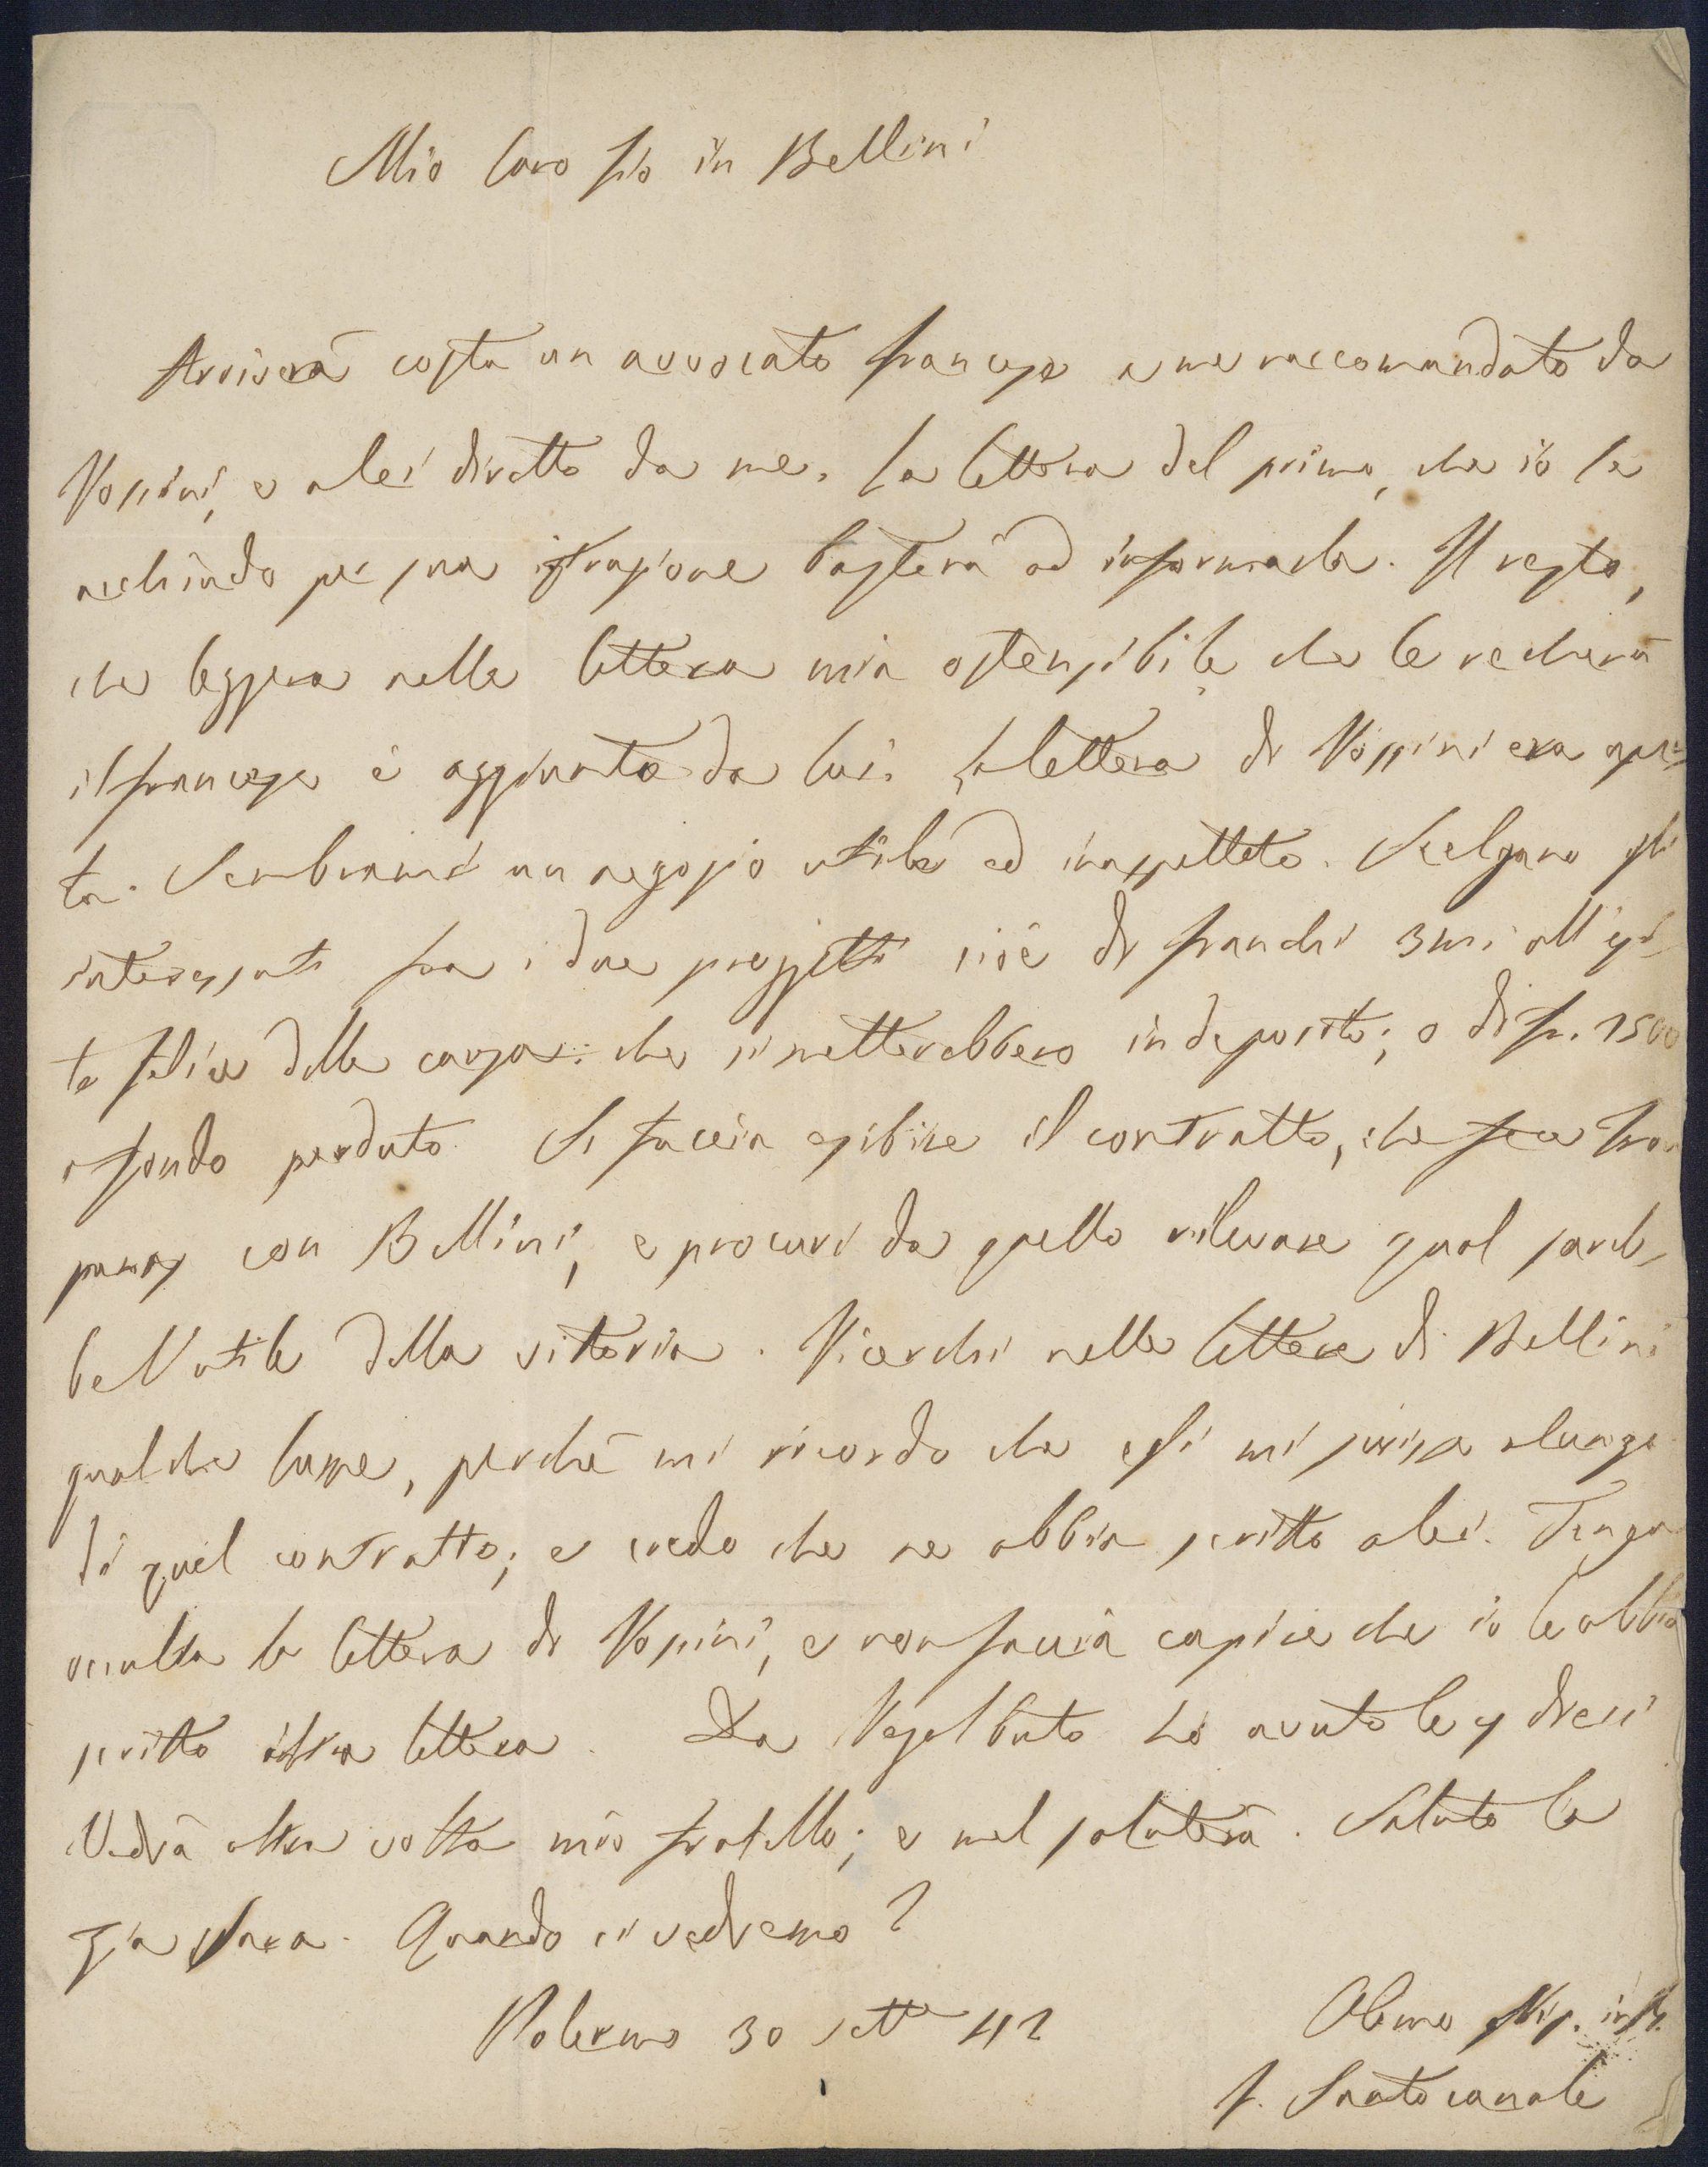 Mio Caro Zio in Bellini
Arriverà costà un avvocato francese a me raccomandato da
Rossini, e a lei diretto da me. La lettera del primo, che io le
acchiudo per sua istruzione basterà ad informarla. Il resto,
che leggerà nella lettera mia ostensibile che le recherà
il francese è aggiunto da lui. La lettera di Rossini era aper-
ta. Sembrami un negozio utile ed inaspettato. Scelgano gli
interessati fra i due progetti cioè di franchi 3mi all'esi-
to felice della causa: che si metterebbero in deposito; o di fr. 1500
a fondo perduto. Si faccia esibire il contratto, che fece Trou
penas con Bellini, e procuri da quello rilevare qual sareb-
be l'utile della vittoria. Ricerchi nelle lettere di Bellini
qualche lume, perchè mi ricordo che egli mi scrisse a lungo
di quel contratto; e credo che ne abbia scritto a lei. Tenga
occulta la lettera di Rossini, e non faccia capire che io le abbia
scritto altra lettera. Da Regalbuto ho avuto le 4 dieci
Vedrà altra volta mio fratello; e mel saluterà. Saluto la
zia Sara. Quando ci vedremo?
Palermo 30 sette 42
Al suo Nip. in B.
F. Santocanale